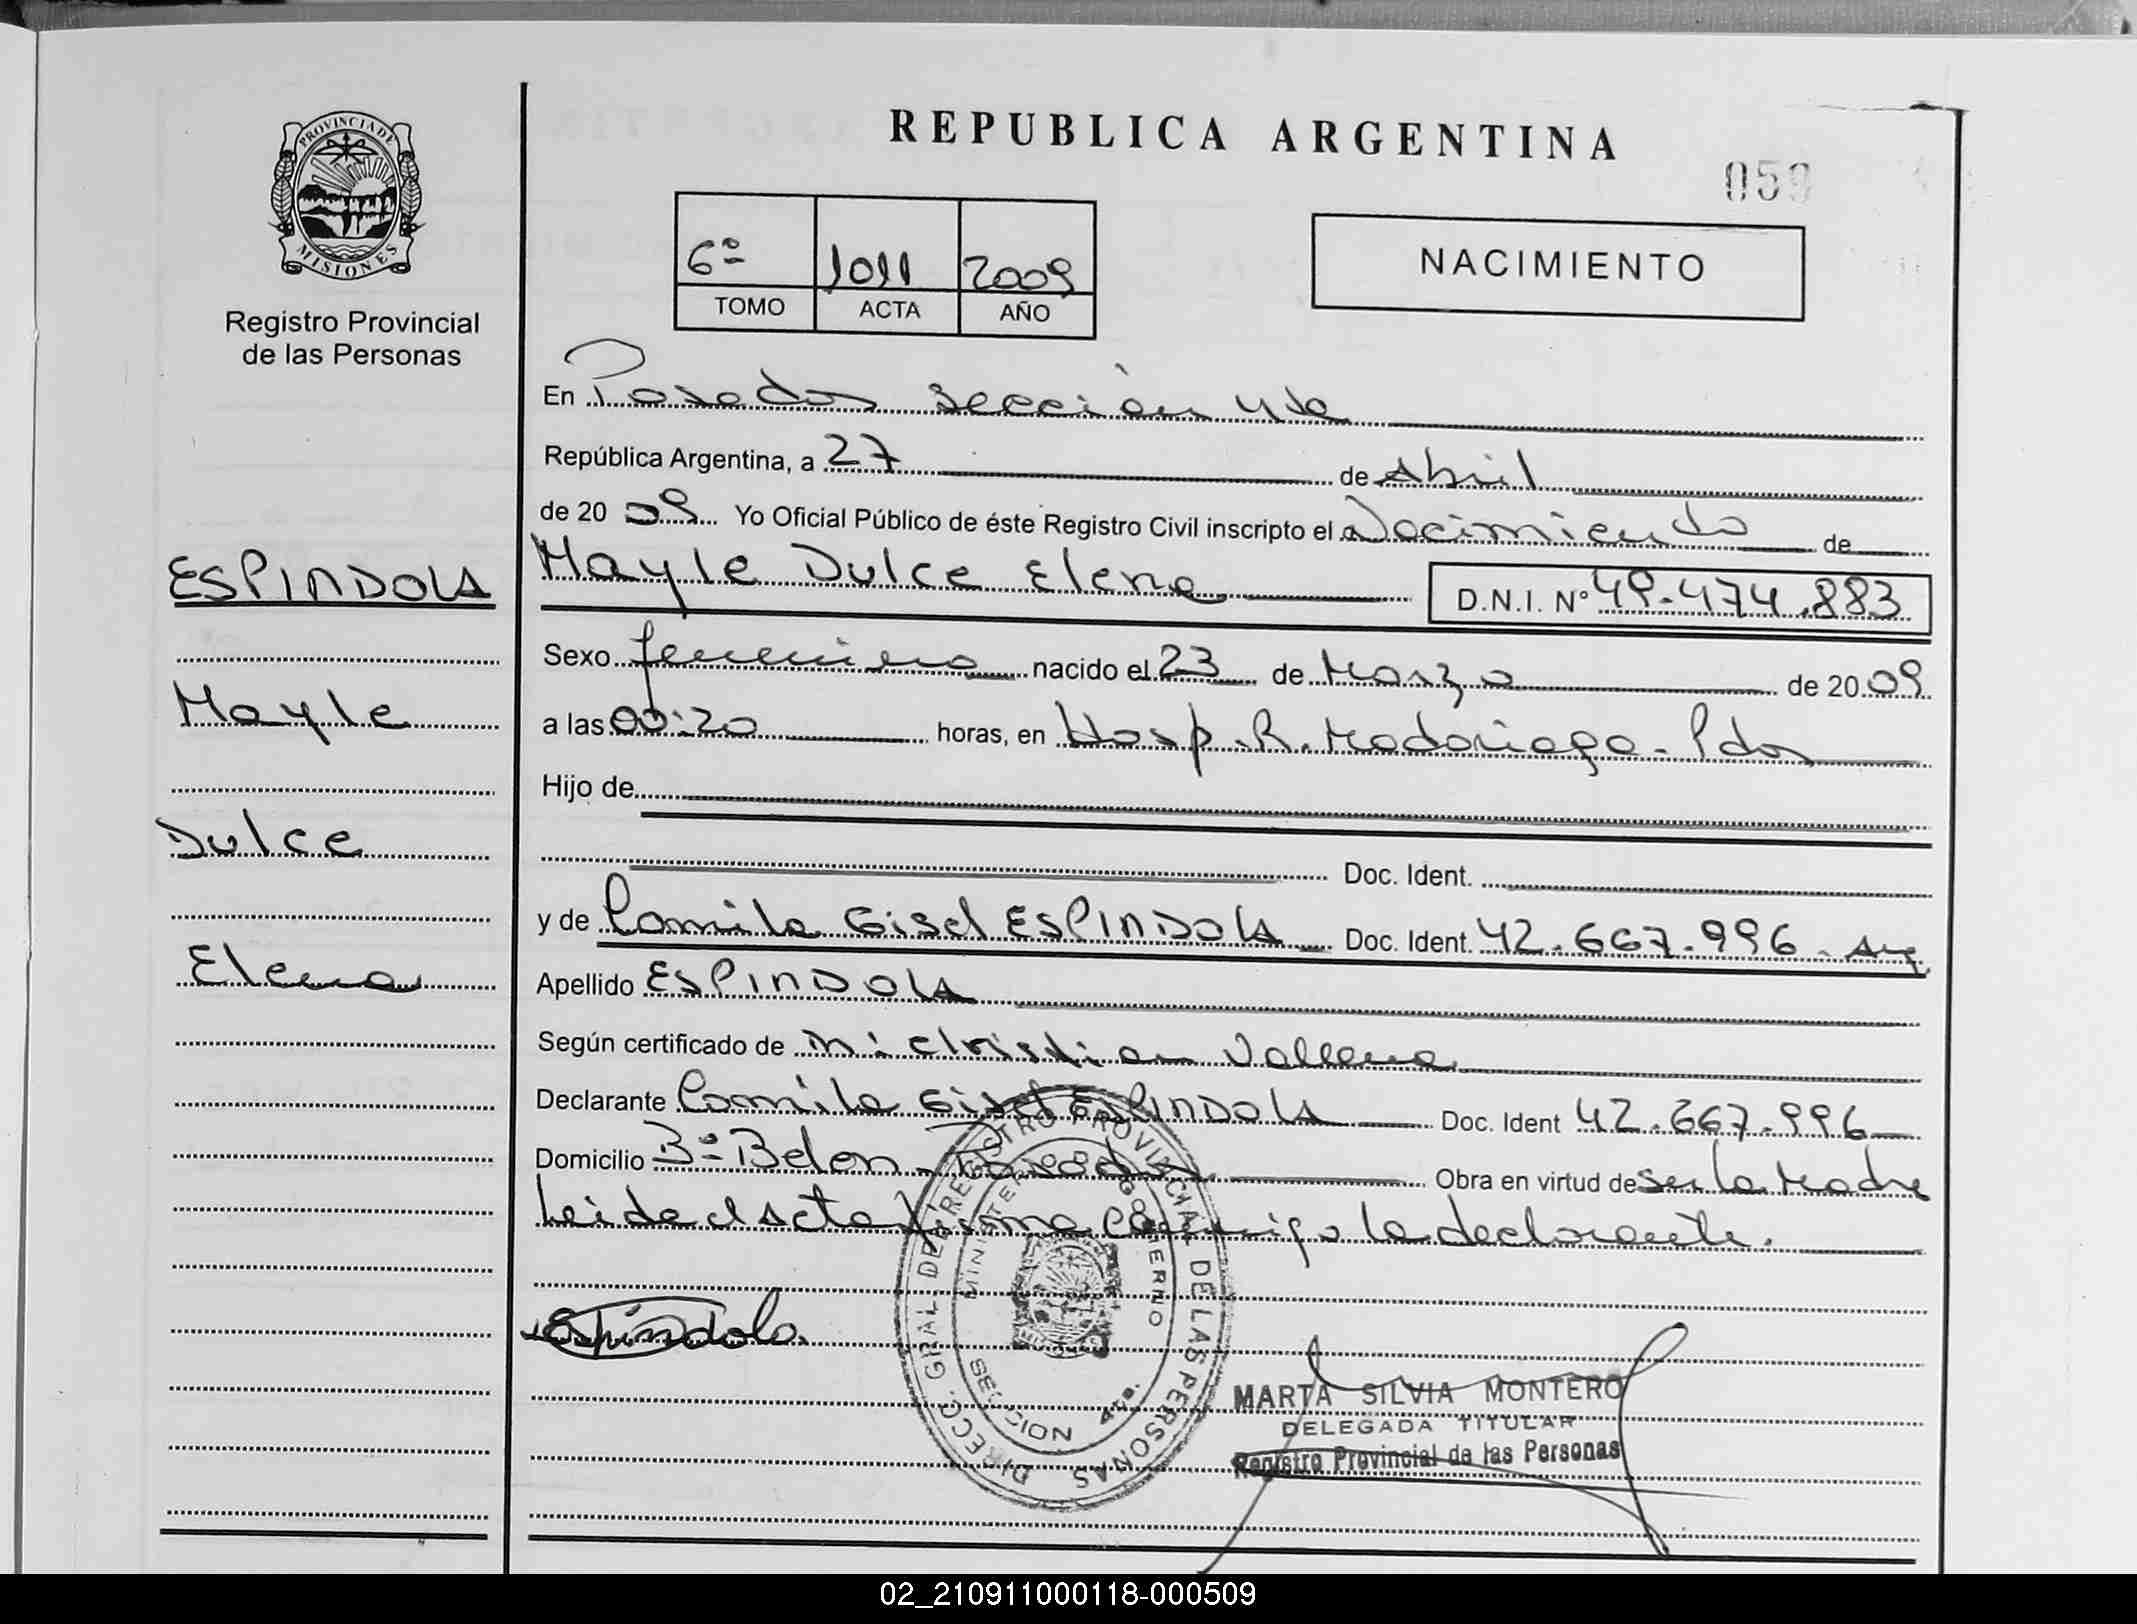 REPUBLICA ARGENTINA
PROVINCIA DE
MISIONES
Registro Provincial
de las Personas
6º 1011 2009
TOMO ACTA AÑO
NACIMIENTO
En Posadas sección 4ta
República Argentina, a 27 de Abril
de 20 09 Yo Oficial Público de éste Registro Civil inscripto el Nacimiento de
Mayle Dulce Elena D.N.I. Nº 49.474.883
ESPINDOLA
Mayle
Dulce
Elena
Sexo femenino nacido el 23 de Marzo de 2009
a las 00:20 horas, en Hosp. R. Madariaga - Pdas
Hijo de
Doc. Ident.
y de Camila Gisel ESPINDOLA Doc. Ident. 42.667.996 - Arg
Apellido ESPINDOLA
Según certificado de Christian
Declarante Camila Gisel ESPINDOLA Doc. Ident 42.667.996
Domicilio Bº Belen - Posadas Obra en virtud de ser la Madre
Leida el acta firma conmigo la declarante.
Espíndola.
DIRECC. GRAL. DEL REGISTRO PROVINCIAL DE LAS PERSONAS
MINISTERIO DE GOBIERNO
SECCION 4ta.
MARTA SILVIA MONTERO
DELEGADA TITULAR
Registro Provincial de las Personas
02_210911000118-000509